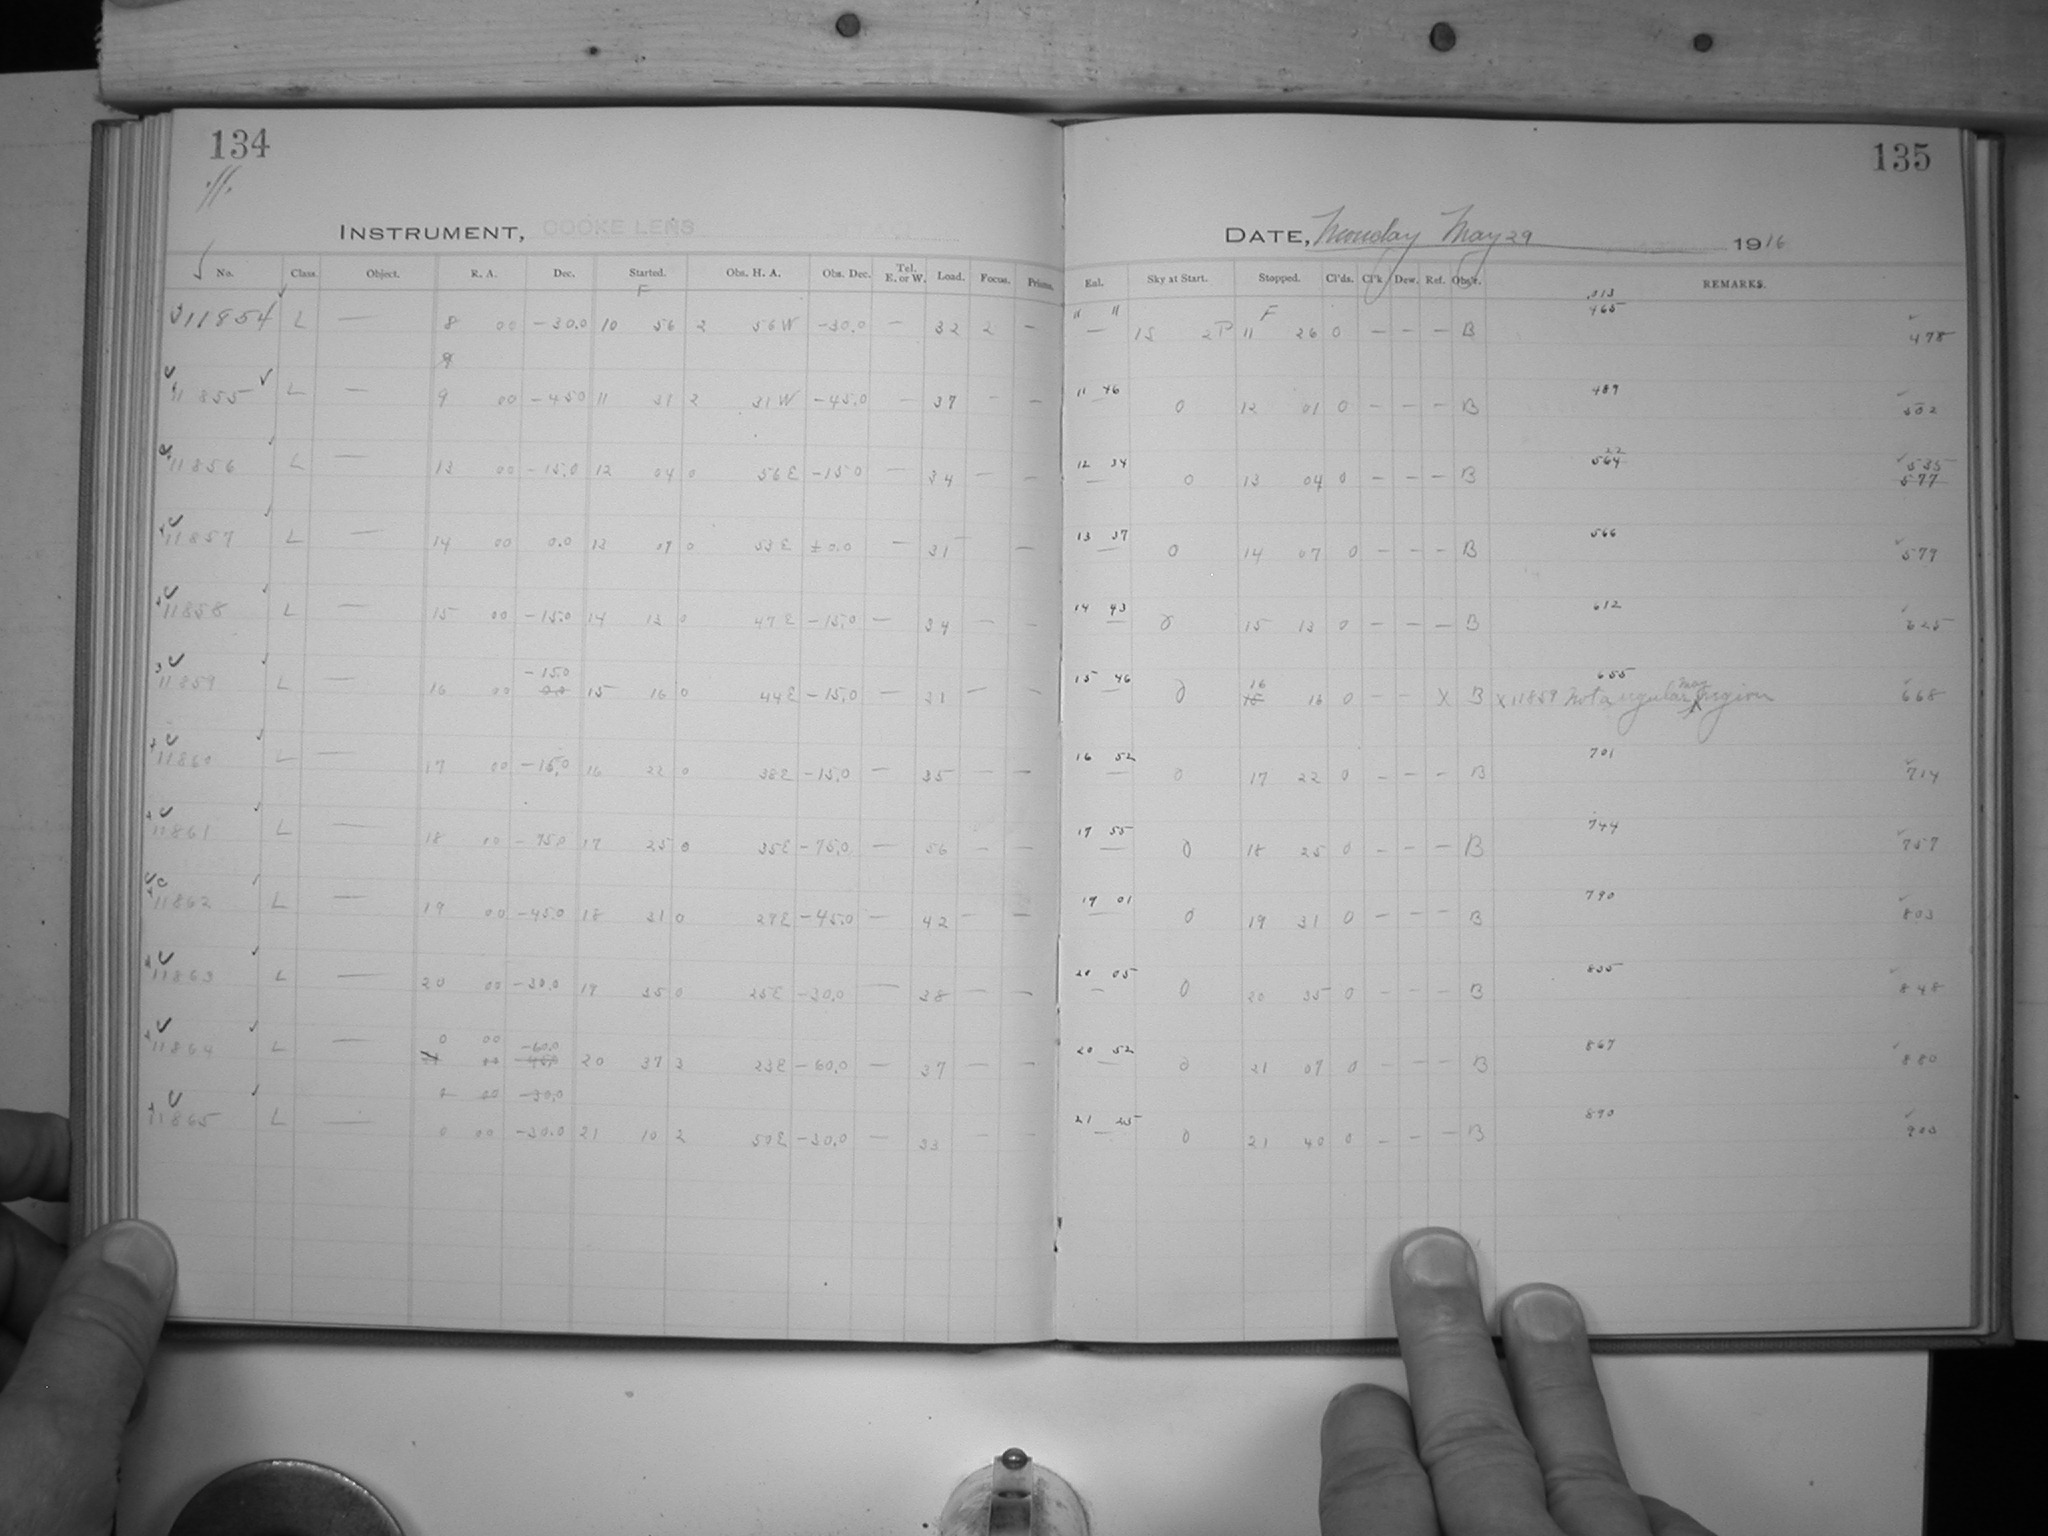 134
135
INSTRUMENT, COOKE LENS
DATE, Monday May 29 1916
No. Class. Object. R. A. Dec. Started. Obs. H. A. Obs. Dec. Tel. E. or W. Load. Focus. Prisms.
Eal. Sky at Start. Stopped. Cl'ds. Cl'k Dew. Ref. Obs'r. REMARKS.
F
F
.013
11854 L — 8 00 -30.0 10 56 2 56 W -30.0 — 32 2 — 11 11 — 15 2P 11 26 0 — — — B 465 478
9
11855 L — 9 00 -45.0 11 31 2 31 W -45.0 — 37 — — 11 46 — 0 12 01 0 — — — B 489 502
11856 L — 13 00 -15.0 12 04 0 56 E -15.0 — 34 — — 12 34 — 0 13 04 0 — — — B 564 22 535 577
11857 L — 14 00 0.0 13 07 0 53 E ±0.0 — 31 — 13 37 — 0 14 07 0 — — — B 566 579
11858 L — 15 00 -15.0 14 13 0 47 E -15.0 — 34 — — 14 43 — 0 15 13 0 — — — B 612 625
-15.0
11859 L — 16 00 0.0 15 16 0 44 E -15.0 — 31 — 15 46 — 0 16 15 16 0 — — X B X 11859 Not a regular May region 655 668
11860 L — 17 00 -15.0 16 22 0 38 E -15.0 — 35 — — 16 52 — 0 17 22 0 — — — B 701 714
11861 L — 18 00 -75.0 17 25 0 35 E -75.0 — 56 — — 17 55 — 0 18 25 0 — — — B 744 757
11862 L — 19 00 -45.0 18 31 0 29 E -45.0 — 42 — — 19 01 — 0 19 31 0 — — — B 790 803
11863 L — 20 00 -30.0 19 35 0 25 E -30.0 — 38 — — 20 05 — 0 20 35 0 — — — B 835 848
0 00 -60.0
11864 L — 00 -45.0 20 37 3 23 E -60.0 — 37 — — 20 52 — 0 21 07 0 — — — B 867 880
0 00 -30.0
11865 L — 0 00 -30.0 21 10 2 50 E -30.0 — 33 — — 21 25 — 0 21 40 0 — — — B 890 903